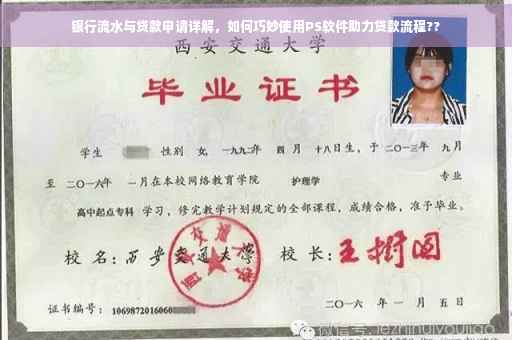 银行流水与贷款申请详解，如何巧妙使用PS软件助力贷款流程??
西安交通大学
毕业证书
学生 性别 女，一九九二年 四月 十八日生，于 二〇一三年 九月
至 二〇一六年 一月在本校网络教育学院 护理学 专业
高中起点专科 学习，修完教学计划规定的全部课程，成绩合格，准予毕业。
校 名：西安交通大学 校 长：王树国
证书编号：1069872016060
二〇一六 年 一 月 五 日
微信号: jezhihuiyoujiao